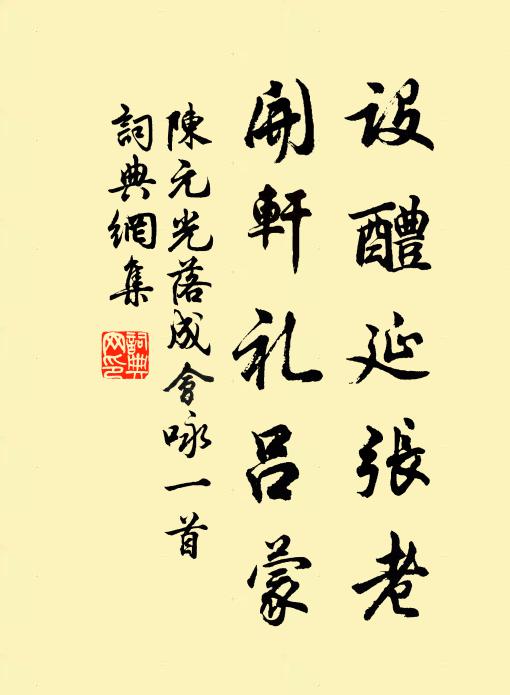 設醴延張老
開軒礼呂蒙
陳元光落成會咏一首
詞典網集
詞典
网印